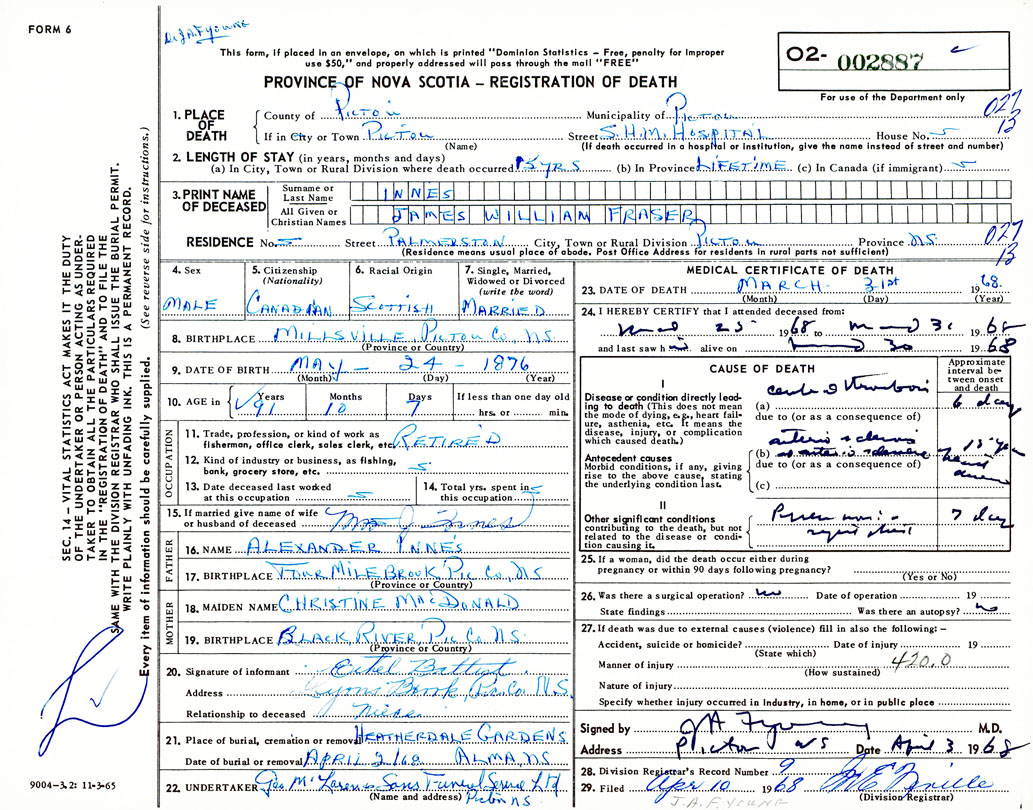 FORM 6
Dr. J.A.F. YOUNG
This form, if placed in an envelope, on which is printed "Dominion Statistics – Free, penalty for Improper
use $50," and properly addressed will pass through the mail "FREE"
PROVINCE OF NOVA SCOTIA – REGISTRATION OF DEATH
02- 002887
For use of the Department only
027
13
1. PLACE OF DEATH
County of PICTOU Municipality of PICTOU
If in City or Town PICTOU Street S.H.M. HOSPITAL House No.
(Name) (If death occurred in a hospital or institution, give the name instead of street and number)
2. LENGTH OF STAY (in years, months and days)
(a) In City, Town or Rural Division where death occurred 15 YRS (b) In Province LIFETIME (c) In Canada (if immigrant)
3. PRINT NAME OF DECEASED
Surname or Last Name INNES
All Given or Christian Names JAMES WILLIAM FRASER
RESIDENCE No. Street PALMERSTON City, Town or Rural Division PICTOU Province NS
(Residence means usual place of abode. Post Office Address for residents in rural parts not sufficient)
027
13
4. Sex MALE
5. Citizenship (Nationality) CANADIAN
6. Racial Origin SCOTTISH
7. Single, Married, Widowed or Divorced (write the word) MARRIED
8. BIRTHPLACE MILLSVILLE, PICTOU Co, N.S.
(Province or Country)
9. DATE OF BIRTH MAY – 24 – 1876
(Month) (Day) (Year)
10. AGE in Years 91 Months 10 Days 7 If less than one day old hrs. or min.
OCCUPATION
11. Trade, profession, or kind of work as fisherman, office clerk, sales clerk, etc. RETIRED
12. Kind of industry or business, as fishing, bank, grocery store, etc.
13. Date deceased last worked at this occupation
14. Total yrs. spent in this occupation
15. If married give name of wife or husband of deceased Innes
FATHER
16. NAME ALEXANDER INNES
17. BIRTHPLACE FOUR MILE BROOK PIC Co, N.S
(Province or Country)
MOTHER
18. MAIDEN NAME CHRISTINE MACDONALD
19. BIRTHPLACE BLACK RIVER PIC Co N.S.
(Province or Country)
20. Signature of informant
Address Lyons Brook, Pic. Co. N.S.
Relationship to deceased Niece
21. Place of burial, cremation or removal HEATHERDALE GARDENS
Date of burial or removal APRIL 2/68 ALMA, NS
22. UNDERTAKER Geo McLaren & Sons Funeral Service Ltd
(Name and address) Pictou NS
MEDICAL CERTIFICATE OF DEATH
23. DATE OF DEATH MARCH 31st 1968.
(Month) (Day) (Year)
24. I HEREBY CERTIFY that I attended deceased from:
25 1968 to 1968
and last saw h alive on 30 1968
CAUSE OF DEATH
Approximate interval between onset and death
I
Disease or condition directly leading to death (This does not mean the mode of dying, e.g., heart failure, asthenia, etc. It means the disease, injury, or complication which caused death.)
(a) thrombosis 6 day
due to (or as a consequence of)
Antecedent causes
Morbid conditions, if any, giving rise to the above cause, stating the underlying condition last.
(b) arterio sclerosis
due to (or as a consequence of)
(c)
II
Other significant conditions contributing to the death, but not related to the disease or condition causing it.
7 day
25. If a woman, did the death occur either during pregnancy or within 90 days following pregnancy?
(Yes or No)
26. Was there a surgical operation? no Date of operation 19
State findings Was there an autopsy? no
27. If death was due to external causes (violence) fill in also the following: –
Accident, suicide or homicide? Date of injury 19
(State which)
Manner of injury 420.0
(How sustained)
Nature of injury
Specify whether injury occurred in industry, in home, or in public place
Signed by JA F Young M.D.
Address Pictou NS Date April 3 1968
28. Division Registrar's Record Number 9
29. Filed Apr 10 1968
(Division Registrar)
J.A.F. YOUNG
SEC. 14 – VITAL STATISTICS ACT MAKES IT THE DUTY
OF THE UNDERTAKER OR PERSON ACTING AS UNDER-
TAKER TO OBTAIN ALL THE PARTICULARS REQUIRED
IN THE "REGISTRATION OF DEATH" AND TO FILE THE
SAME WITH THE DIVISION REGISTRAR WHO SHALL ISSUE THE BURIAL PERMIT.
WRITE PLAINLY WITH UNFADING INK. THIS IS A PERMANENT RECORD.
Every item of information should be carefully supplied. (See reverse side for instructions.)
9004-3.2: 11-3-65